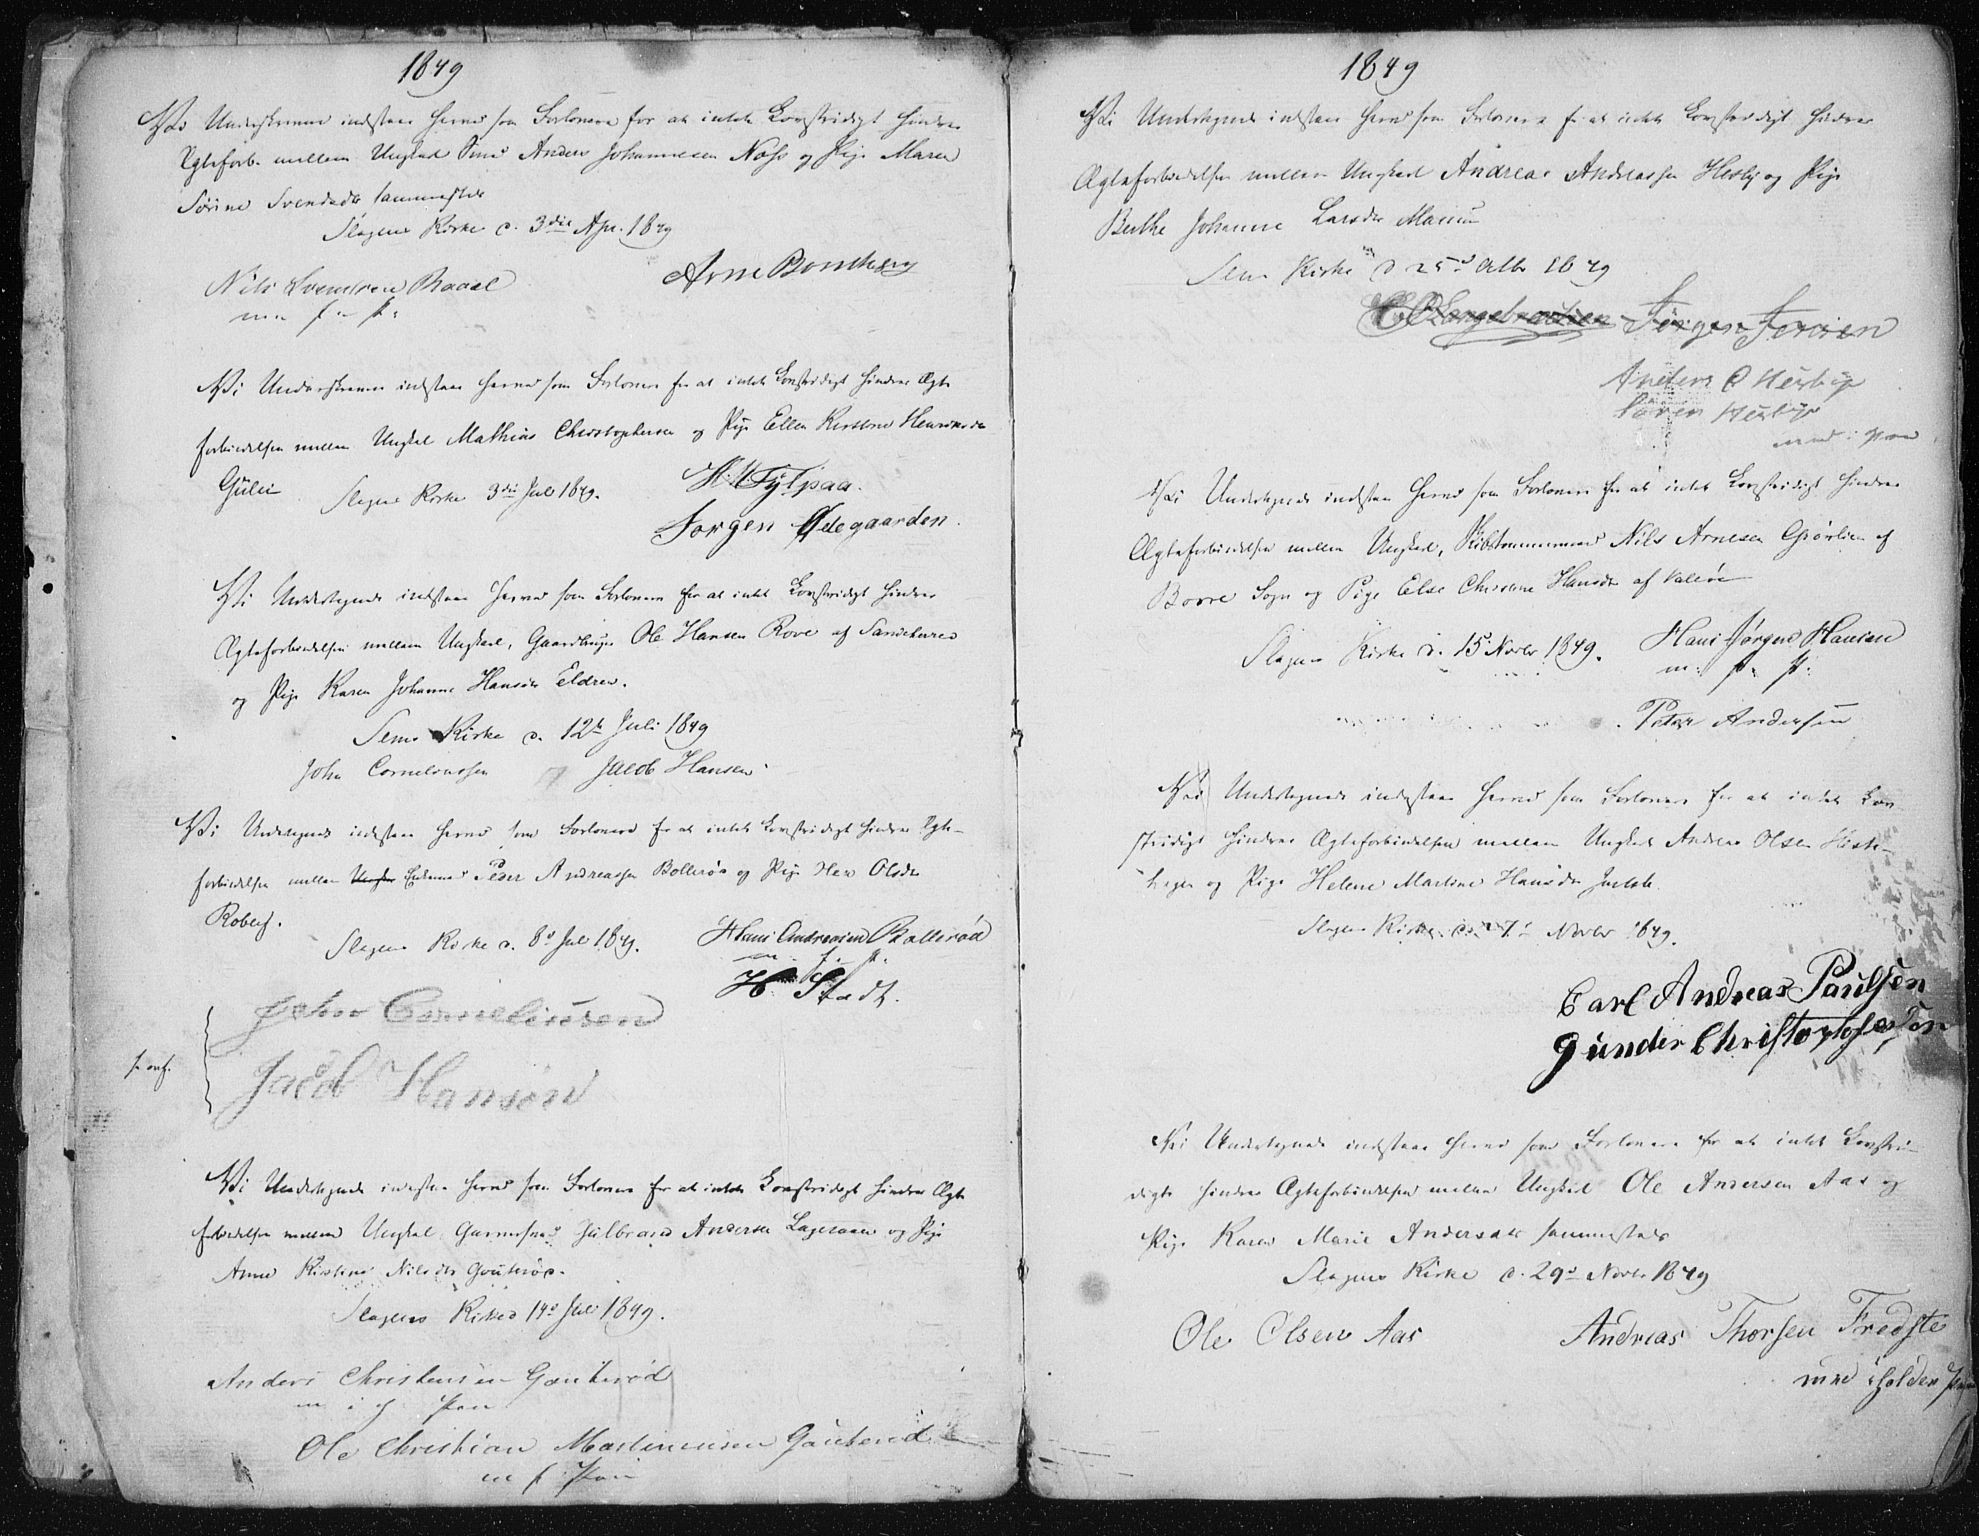 1849
Vi Underskrevne indstaae herved som Forlovere for at intet Lovstridigt hindrer
Ægteforb. mellem Ungkarl Smed Anders Johannesen Næss og Pige Maren
Sørine Svendsdr sammesteds
Slagens Kirke d. 3die Apr. 1849
Arne Bomberg
Nils Svendsen Raael
m f P:
Vi Underskrevne indstaae herved som Forlovere for at intet Lovstridigt hindrer Ægte
forbindelsen mellem Ungkal Mathias Christophersen og Pige Ellen Kirstine Henriksdr
Gulei
Slagens Kirke 3die Juli 1849.
Jørgen Ødegaarden.
Vi Undertegnede indstaae herved som Forlovere for at intet Lovstridigt hindrer
Ægteforbindelsen mellem Ungkarl, Gaardbruger Ole Hansen Rove af Sandeherred
og Pige Karen Johanne Hansdr Eldrev.
Sems Kirke d. 12te Juli 1849
John Corneliussen Jacob Hansen
Vi Undertegnede indstaae herved som Forlovere for at intet Lovstridigt hindrer Ægte-
forbindelsen mellem Ungkar Enkemand Peder Andreassen Bollerød og Pige Olsdr
Roberg.
Slagens Kirke d. 8de Juli 1849.
Hans Andreasen Bollerød
m. f. P.
H Stadt.
John Corneliusen
Jacob Hansen
Vi Undertegnede indestaae herved som Forlovere for at intet Lovstridigt hindrer Ægte
forbindelsen mellem Ungkal Gulbrand Andersen og Pige
Anne Kirstine Nilsdr Gouterød.
Slagens Kirke d 14de Juli 1849.
Anders Christensen Gouterød
m i f Pen
Ole Christian Martinusen Gouterød
m f Pen
1849
Vi Undertegnede indstaae herved som Forlovere for at intet Lovstridigt hindrer
Ægteforbindelsen mellem Ungkarl Andreas Andreassen Hesby og Pige
Berthe Johanne Larsdr
Sems Kirke d 25de Octbr 1849
Jørgen Jersøen
Anders C Hesbye
Søren Hesbye
med : pen
Vi Undertegnede indstaae herved som Forlovere for at intet Lovstridigt hindrer
Ægteforbindelsen mellem Ungkarl, Skibstømmermand Nils Arnesen Gjørlien af
Borre Sogn og Pige Else Christine Hansdr af Valløe
Slagens Kirke d. 15 Novbr 1849.
Hans Jørgen Hansen
m: P: P:
Peter Andersen
Vi Undertegnede indstaae herved som Forlovere for at intet Lov
stridigt hindrer Ægteforbindelsen mellem Ungkarl Andreas Olsen Heste-
hagen og Pige Helene Martine Hansdr
Slagens Kirke d. Novbr 1849.
Carl Andreas Paulsen
Gunder Christophersen
Vi Undertegnede indstaae herved som Forlovere for at intet Lovstri-
digt hindrer Ægteforbindelsen mellem Ungkarl Ole Andersen Aas og
Pige Karen Marie Andersdr sammesteds
Slagens Kirke d. 29de Novbr 1849
Ole Olsen Aas
Andreas Thorsen Fredste
med iholden Pen